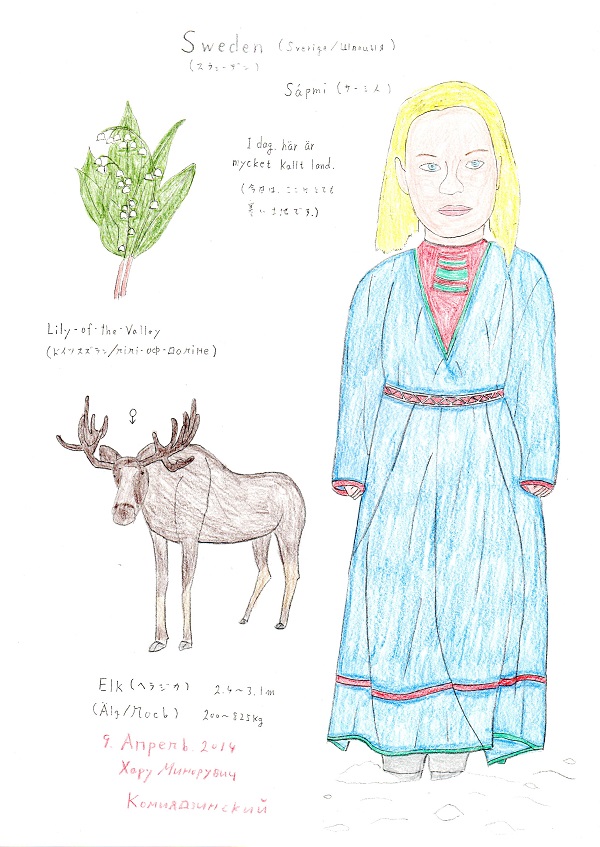 Sweden (Sverige/
(スウェーデン)
Sápmi (サーミ人)
I dag, här är
mycket kallt land.
(今日は、ここはとても
寒い土地です。)
Lily-of-the-Valley
(ドイツスズラン/лілі-оф-Доліне)
♂
Elk (ヘラジカ) 2.4~3.1m
(Älg/Лось) 200~825kg
9. Апрель. 2014
Хару Минорувич
Комиядзинский